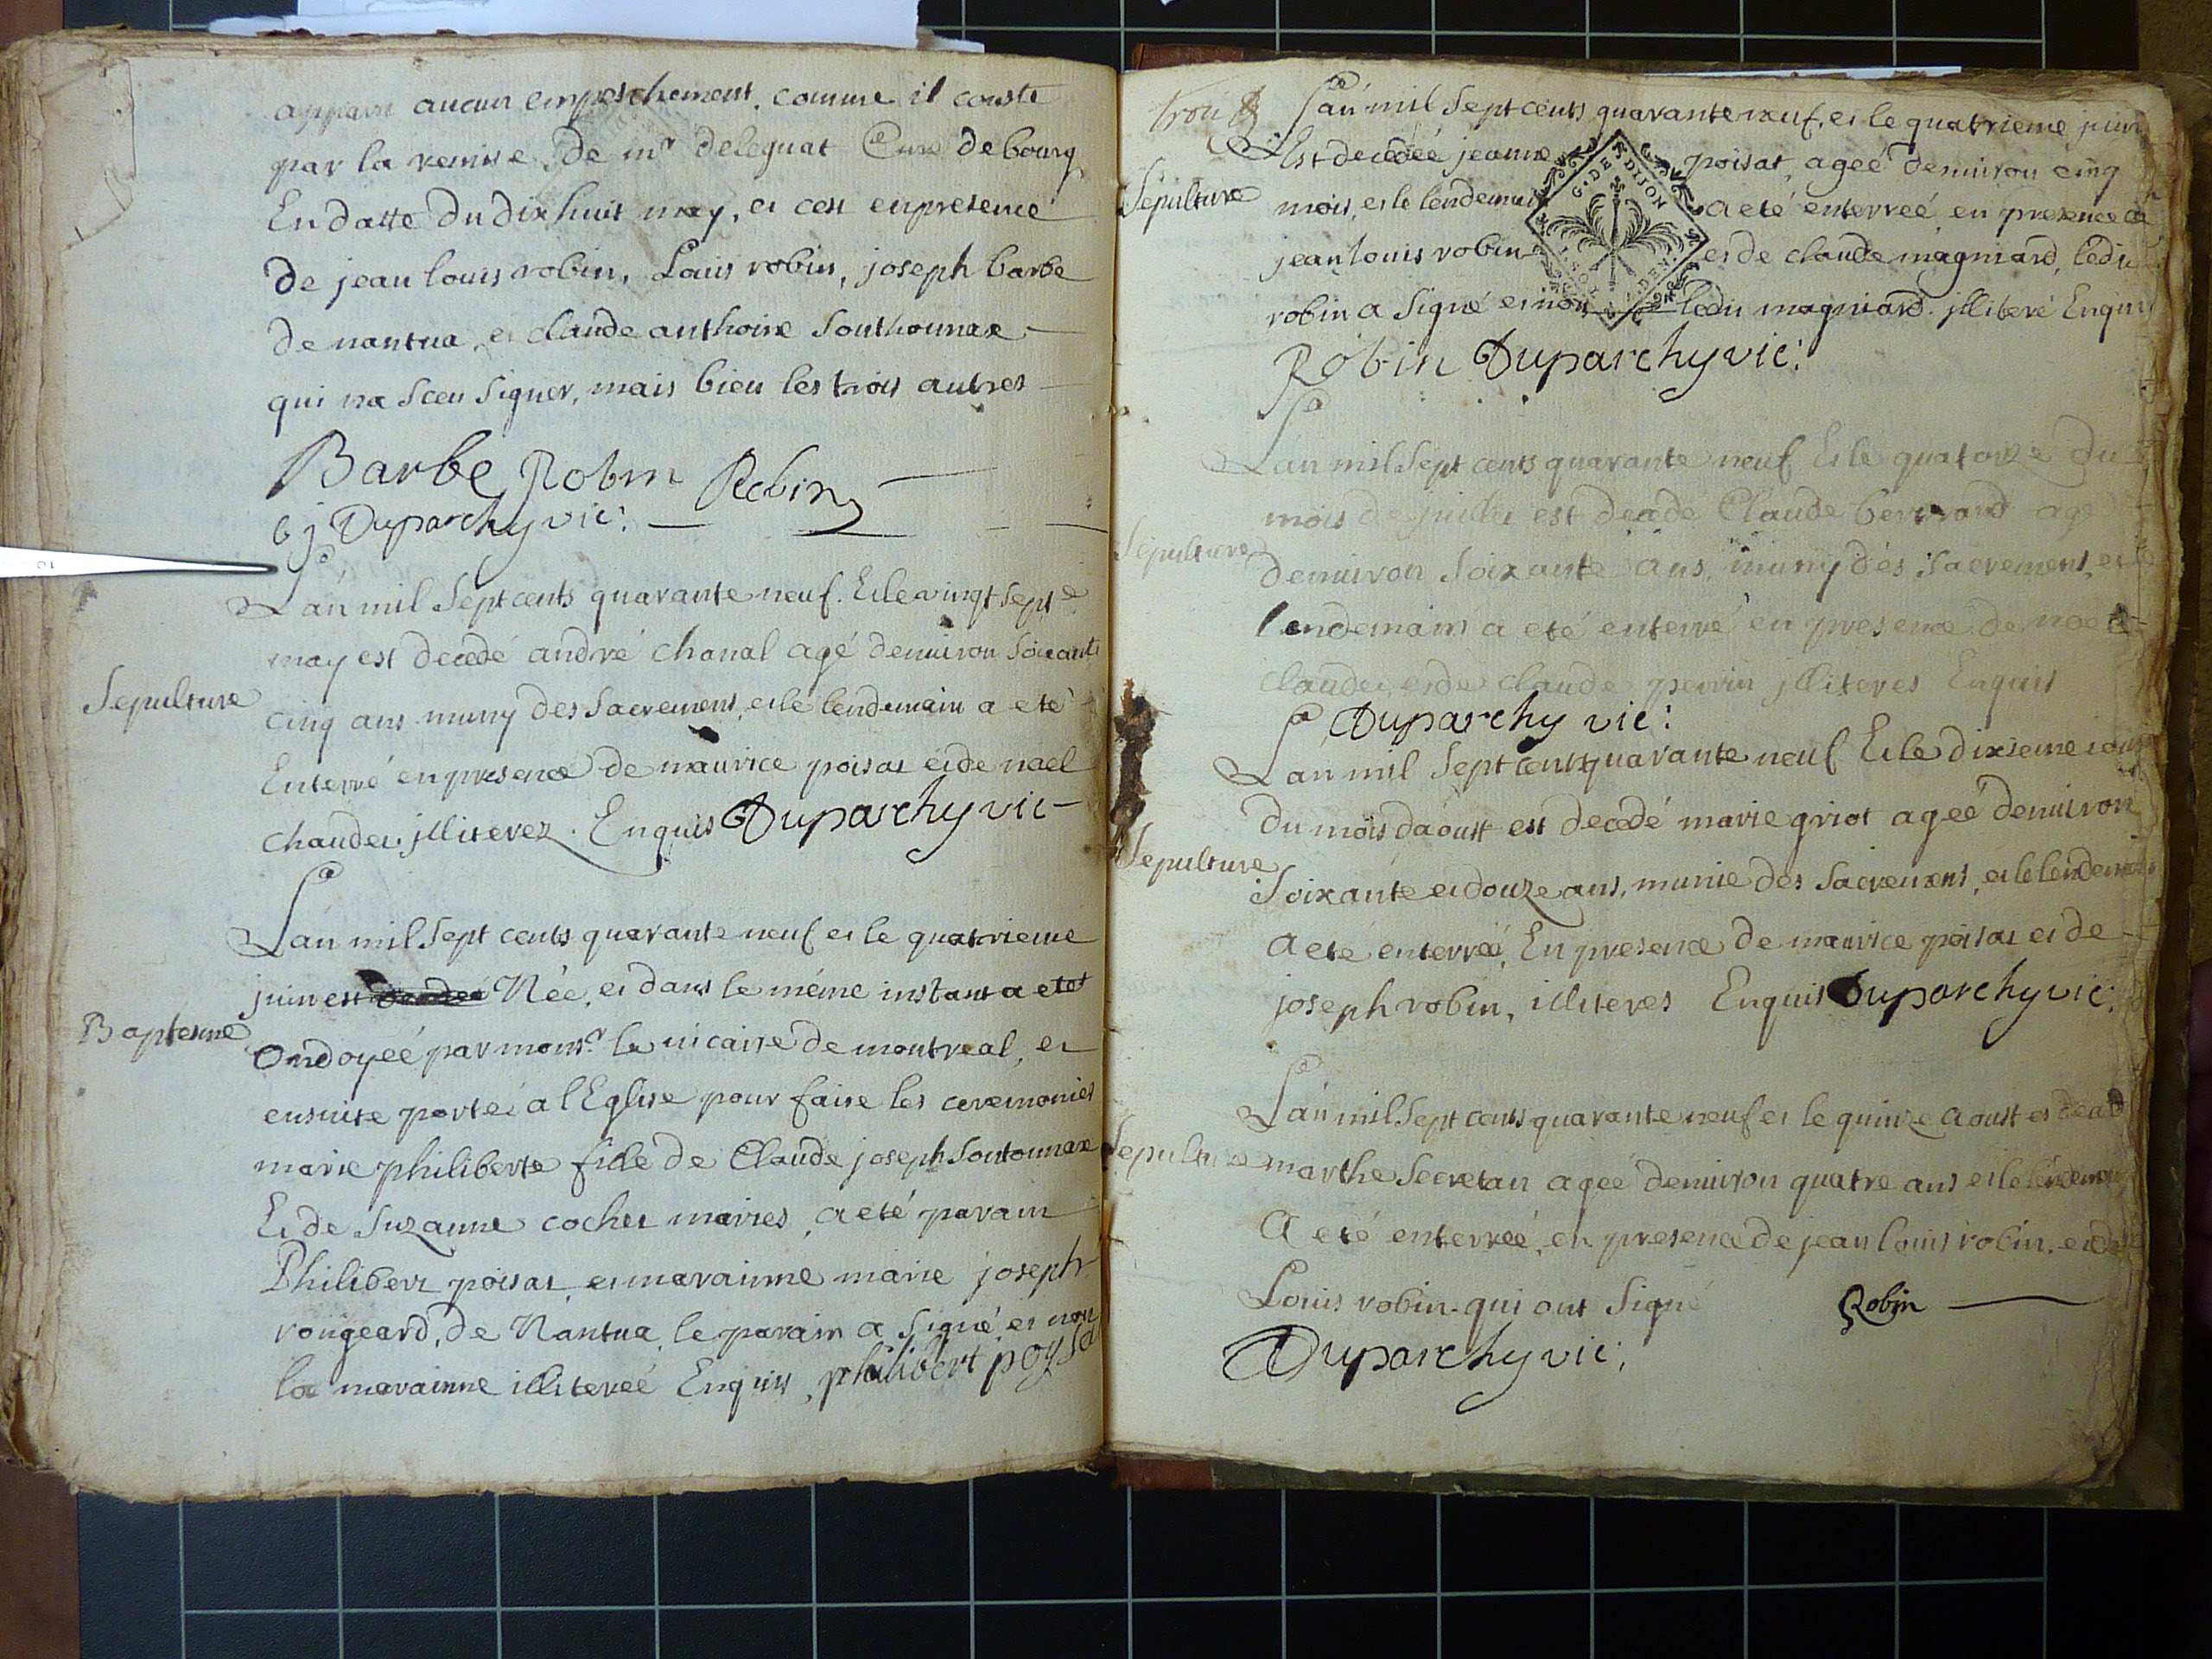 appain aucun empeschement, comme il conste
par la remise de mr deleguat Curé de bourg
En datte du dix huit may, et cest en presence
de jean louis robin, Louis robin, joseph barbe
de nantua, et claude anthoine Southonnax
qui na sceu signer, mais bien les trois autres
Barbe Robin Robin
Duparchy vic:
Lan mil Sept cents quarante neuf. Et le vingt septe
may est decedé andré chanal agé denviron soixante
Sepulture
cinq ans muny des Sacremens, et le lendemain a eté
Enterré en presence de maurice poisat et de nael
chaudet illiterez. Enquis Duparchy vic
Lan mil Sept cents quarante neuf et le quatrieme
juin est Née, et dans le méme instant a eté
Baptesme
Ondoyeé par monsr le vicaire de montreal, et
ensuite porteé a lEglise pour faire les ceremonies
marie philiberte fille de Claude joseph Soutonnax
Et de Suzanne cochet mariés, a eté parain
Philibert poisat et marainne marie joseph
rougeard, de Nantua, le parain a signé et non
la marainne illitereé Enquis, philibert poysa
Lan mil Sept cents quarante neuf, et le quatrieme juin
Est decedeé jeanne poisat, ageé denviron cinq
Sepulture
mois, et le lendemain a eté enterreé en presence de
jean louis robin et de claude magniard, ledit
robin a signé et non ledit magniard illiteré Enquis
G. DE DIJON
Robin Duparchy vic:
Lan mil Sept cents quarante neuf Et le quatorze du
mois de juillet est decedé Claude bertrand agé
Sepulture
denviron soixante ans, muny des sacremens, et le
lendemain a eté enterré en presence de noel
claudet, et de claude perrin illiteres Enquis
Duparchy vic:
Lan mil Sept cents quarante neuf Et le dixieme jour
du mois daoust est decedé marie griot ageé denviron
Sepulture
Soixante et douze ans, munie des Sacremens, et le lendemain
a ete enterreé, En presence de maurice poisat et de
joseph robin, illiteres Enquis Duparchy vic:
Lan mil Sept cents quarante neuf et le quinze aoust es decedé
Sepulture
marthe Secretan ageé denviron quatre ans et le lendemain
a eté enterreé, en presence de jean louis robin, et de
Louis robin qui ont signé Robin
Duparchy vic: